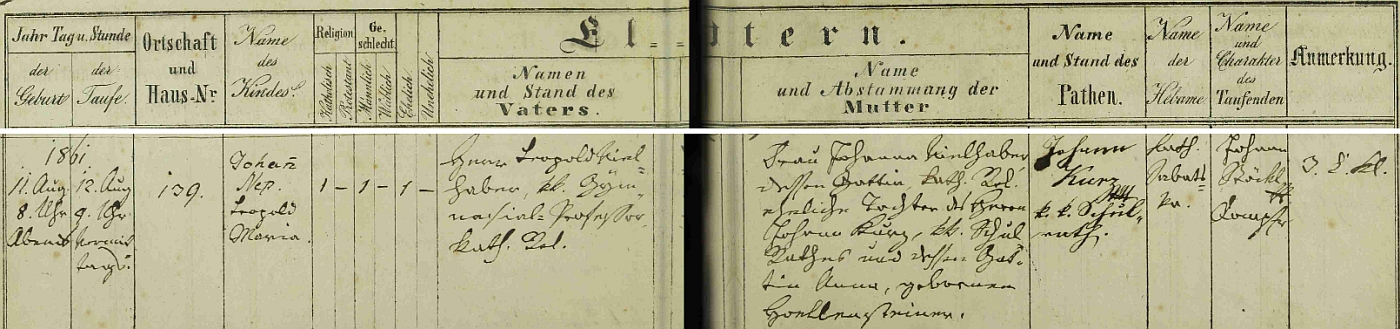 Jahr Tag u. Stunde
der Geburt
der Taufe.
Ortschaft
und
Haus-Nr
Name
des
Kindes
Religion
Katholisch
Protestant
Geschlecht.
Männlich
Weiblich
Ehelich
Unehelich
El=tern.
Namen
und Stand des
Vaters.
Name
und Abstammung der
Mutter
Name
und Stand des
Pathen.
Name
der
Hebame
Name
und
Charakter
des
Taufenden
Anmerkung.
1861
11. Aug.
8. Uhr
Abends
12. Aug
9. Uhr
vormit
tags.
139.
Johañ
Nep.
Leopold
Maria.
1 – 1 – 1 –
Herr Leopold Viel=
haber, kk. Gÿm=
nasial=Professor,
kath. Rel.
Frau Johanna Vielhaber
dessen Gattin, kath. Rel.
eheliche Tochter des Herrn
Johann Kurz, kk. Schul
Rathes und dessen Gat=
tin Anna, gebornen
Hoellensteiner.
Johann
Kurz
k. k. Schul=
rath.
kath.
Johann
Stöckl